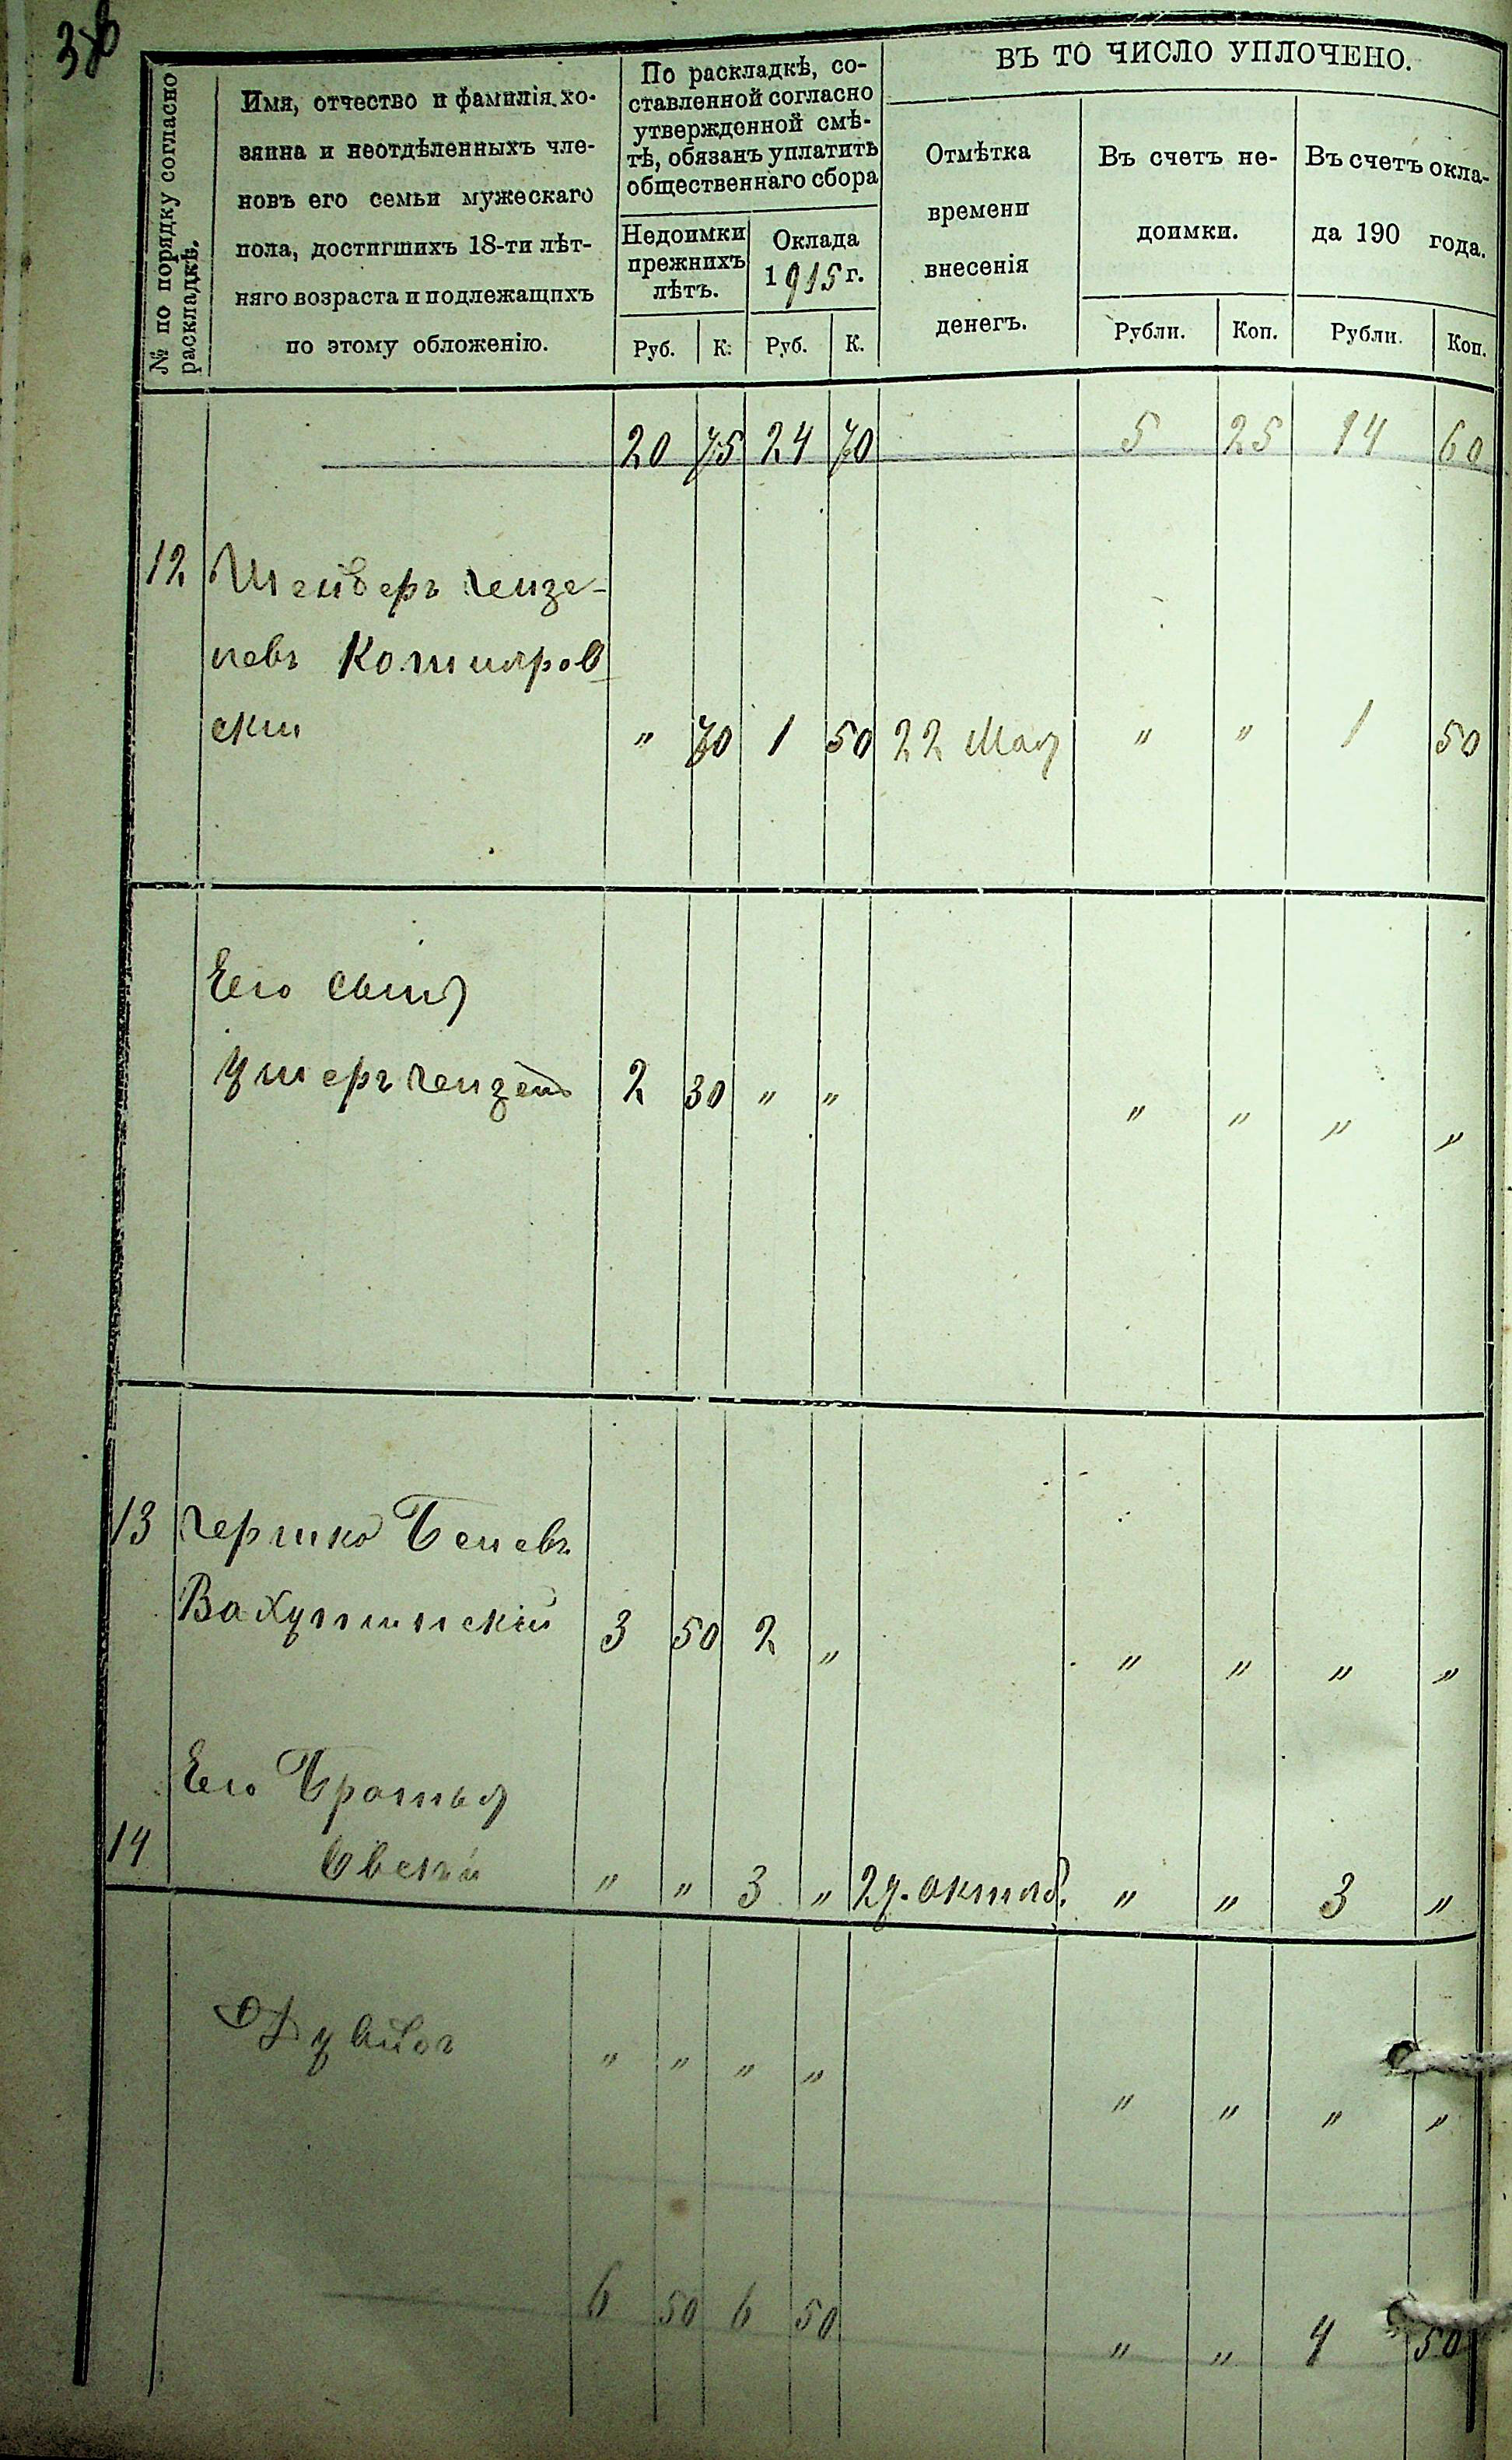 ВЪ ТО ЧИСЛО УПЛОЧЕНО.
№ по порядку согласно
раскладкѣ.
Имя, отчество и фамилія хо-
зяина и неотдѣленныхъ чле-
новъ его семьи мужескаго
пола, достигшихъ 18-ти лѣт-
няго возраста и подлежащихъ
по этому обложенію.
По раскладкѣ, со-
ставленной согласно
утвержденной смѣ-
тѣ, обязанъ уплатить
общественнаго сбора
Недоимки
прежнихъ
лѣтъ.
Оклада
1915 г.
Руб. К. Руб. К.
Отмѣтка
времени
внесенія
денегъ.
Въ счетъ не-
доимки.
Рубли. Коп.
Въ счетъ окла-
да 190 года.
Рубли. Коп.
20 75 24 70 5 25 14 60
12
левъ Котляров
ски " 70 1 50 22 Мая " " 1 50
Его сынъ
2 30 " " " " " "
13 Гершко Бенев
3 50 2 " " " " "
Его Братья
14 Овсей " " 3 " октяб. " " 3 "
" " " " " " " "
6 50 6 50 " " 4 50